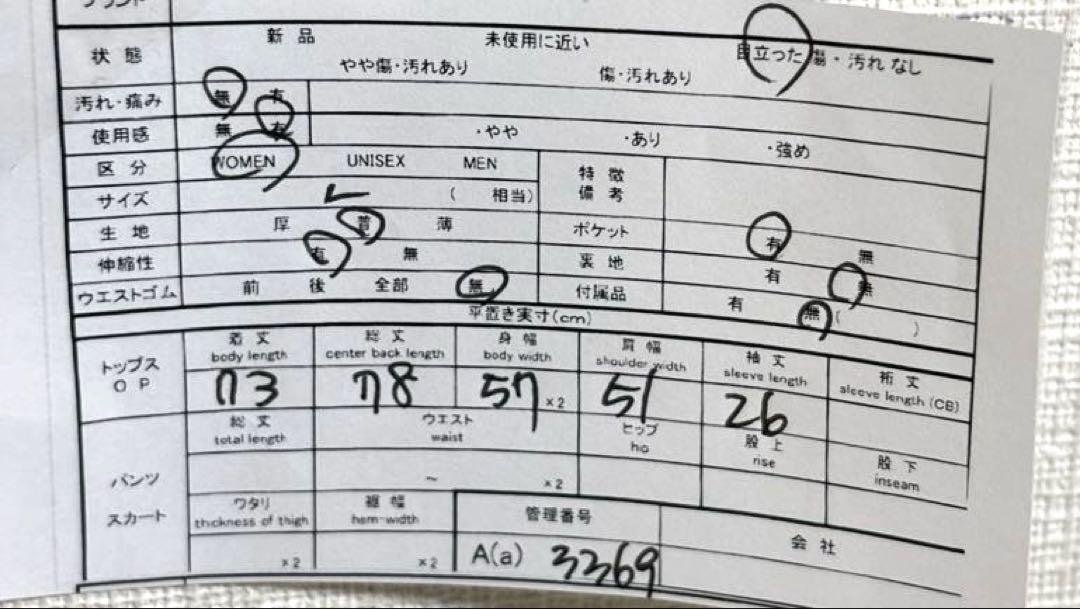 ブランド
状態 新品 未使用に近い 目立った傷・汚れなし
やや傷・汚れあり 傷・汚れあり
汚れ・痛み 無 有
使用感 無 有 ・やや ・あり ・強め
区分 WOMEN UNISEX MEN 特徴
備考
サイズ ( 相当)
生地 厚 普 薄 ポケット 有 無
伸縮性 有 無 裏地 有 無
ウエストゴム 前 後 全部 無 付属品 有 無 ( )
平置き実寸(cm)
トップス
OP
着丈 総丈 身幅 肩幅 袖丈 裄丈
body length center back length body width shoulder width sleeve length sleeve length (CB)
73 78 57 ×2 51 26
パンツ
スカート
総丈 ウエスト ヒップ 股上 股下
total length waist hip rise inseam
~ ×2
ワタリ 裾幅 管理番号 会社
thickness of thigh hem-width
×2 ×2 A(a) 3369